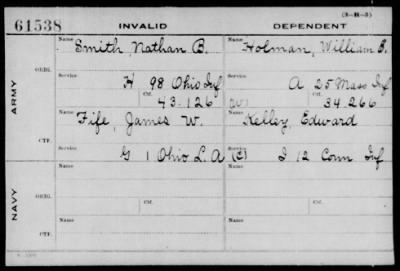 (3-H-3)
61538 INVALID DEPENDENT
Name Smith, Nathan B. Name Holman, William B.
ARMY
ORIG.
Service H 98 Ohio Inf Service A 25 Mass Inf
Ctf. 43.126 (W) Ctf. 34.266
Name Fife, James W. Name Kelley, Edward
CTF.
Service G 1 Ohio L. A Service (C) I 12 Conn Inf
NAVY
Name Ctf. Name Ctf.
ORIG.
Name Name
CTF.